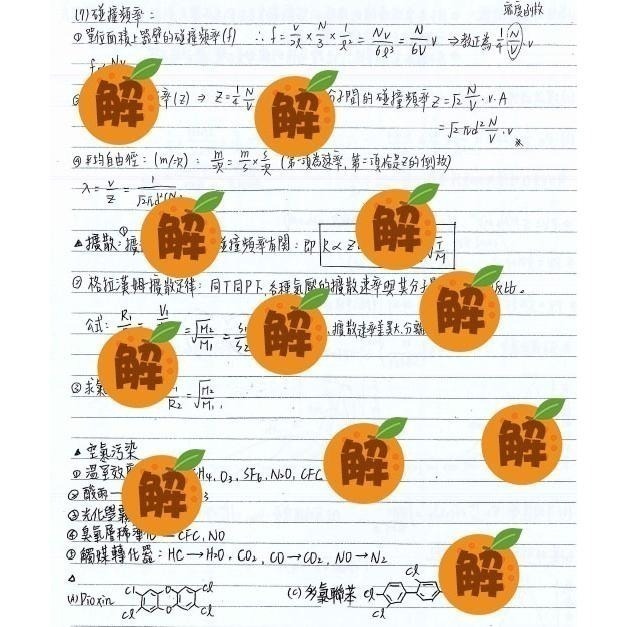 密度的故
(7) 碰撞頻率：
①單位面積上器壁的碰撞頻率(f) ∴ f = v/2l × N/3 × 1/l² = Nv/6l³ = N/6V v ⇒ 教正為 1/4 (N/V)·v
解
解
率(z) ⇒ Z = 1/4 N/V 分子間的碰撞頻率 Z = √2 N/V · v · A
= √2 πd² N/V · v
④平均自由徑：(m/次)： m/次 = m/s × s/次 (第一項為速率,第二項指是Z的倒數)
λ = v/Z = 1/√2πd²(N
解
解
▲擴散：① 碰撞頻率有關：即 R ∝ Z √T/M
②格拉漢姆擴散定律：同T同P下,各種氣體的擴散速率與其分子 反比。
解
解
公式： R₁ V₁ = √M₂/M₁ = 擴散速率差異大,分
解
③求氣 R₂ = √M₂/M₁
解
▲空氣污染
解
解
①溫室效 H₄, O₃, SF₆, N₂O, CFC
②酸雨 3
③光化學
④臭氧層稀薄化 → CFC, NO
⑤觸媒轉化器：HC → H₂O, CO₂, CO → CO₂, NO → N₂
解
(A) Dioxin Cl O Cl Cl O Cl
(C) 多氯聯苯 Cl Cl Cl